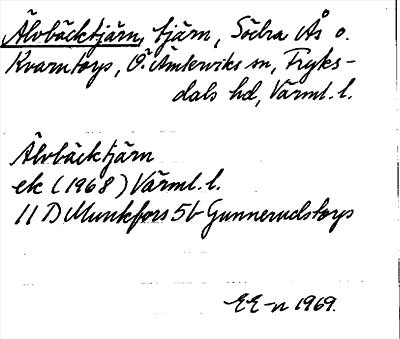 Älvbäcktjärn, tjärn, Södra Ås o.
Kvarntorps, Ö. Ämterviks sn, Fryks-
dals hd, Värml. l.
Älvbäcktjärn
ek (1968) Värml. l.
11 D Munkfors 5b Gunnerudstorps
EE-n 1969.